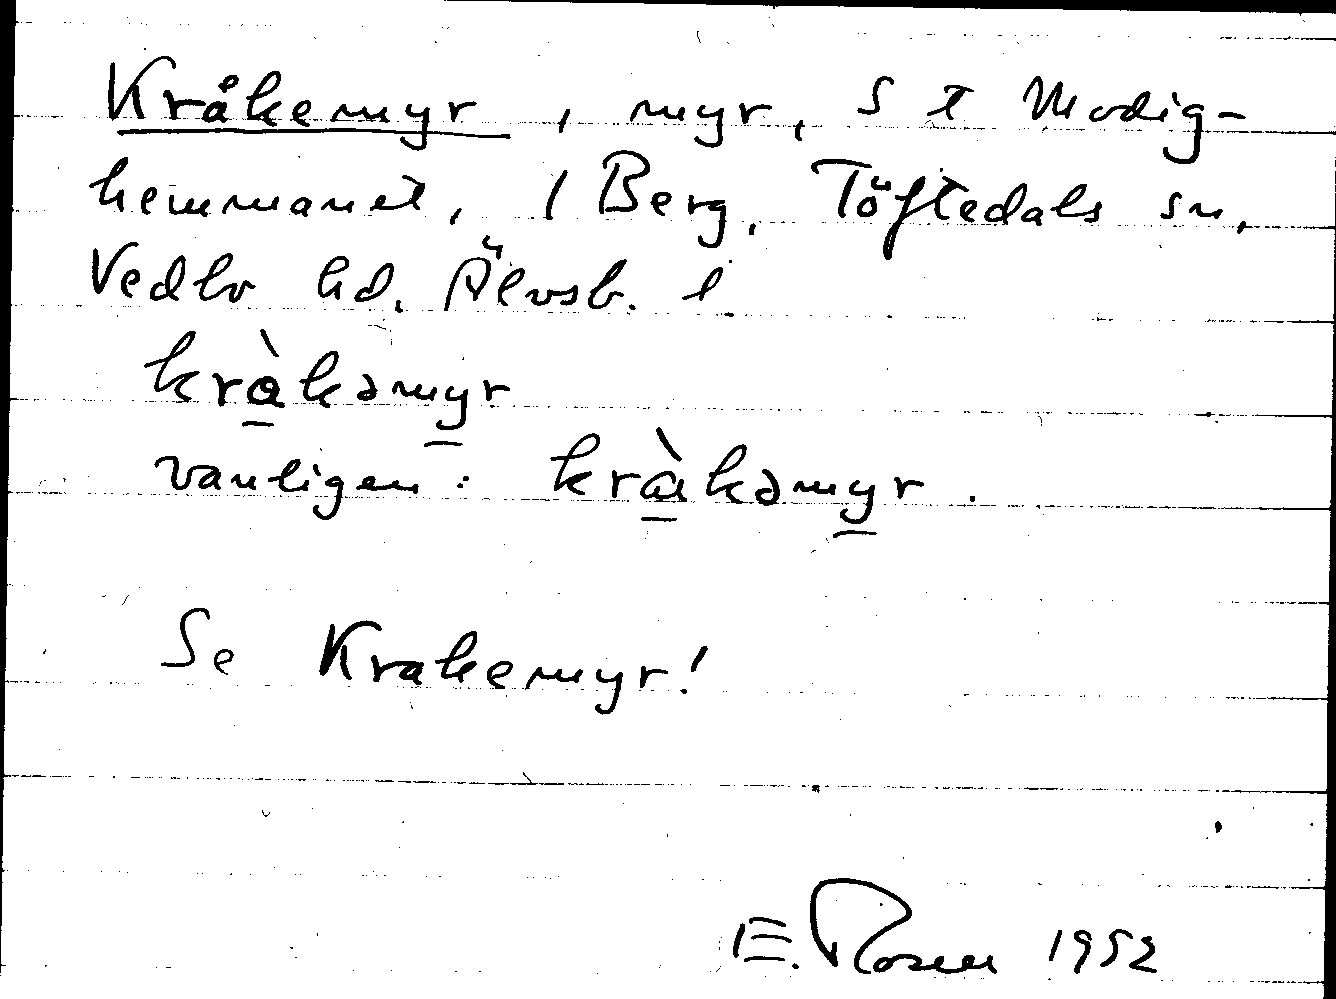 Kråkemyr, myr, S t Modig-
hemmanet, 1 Berg, Töftedals sn,
Vedbo hd. Älvsb. l.
kràkəmyr
vanligen: kràkəmyr.
Se Krakemyr!
E. Rosen 1952